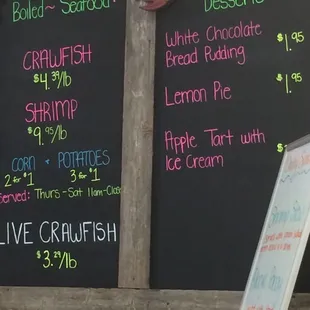 Boiled ~ Seafood
CRAWFISH
$4.39/lb
SHRIMP
$9.95/lb
CORN & POTATOES
2 for $1 3 for $1
Served: Thurs-Sat 11am-Close
LIVE CRAWFISH
$3.29/lb
Desserts
White Chocolate $1.95
Bread Pudding
Lemon Pie $1.95
Apple Tart with $
Ice Cream